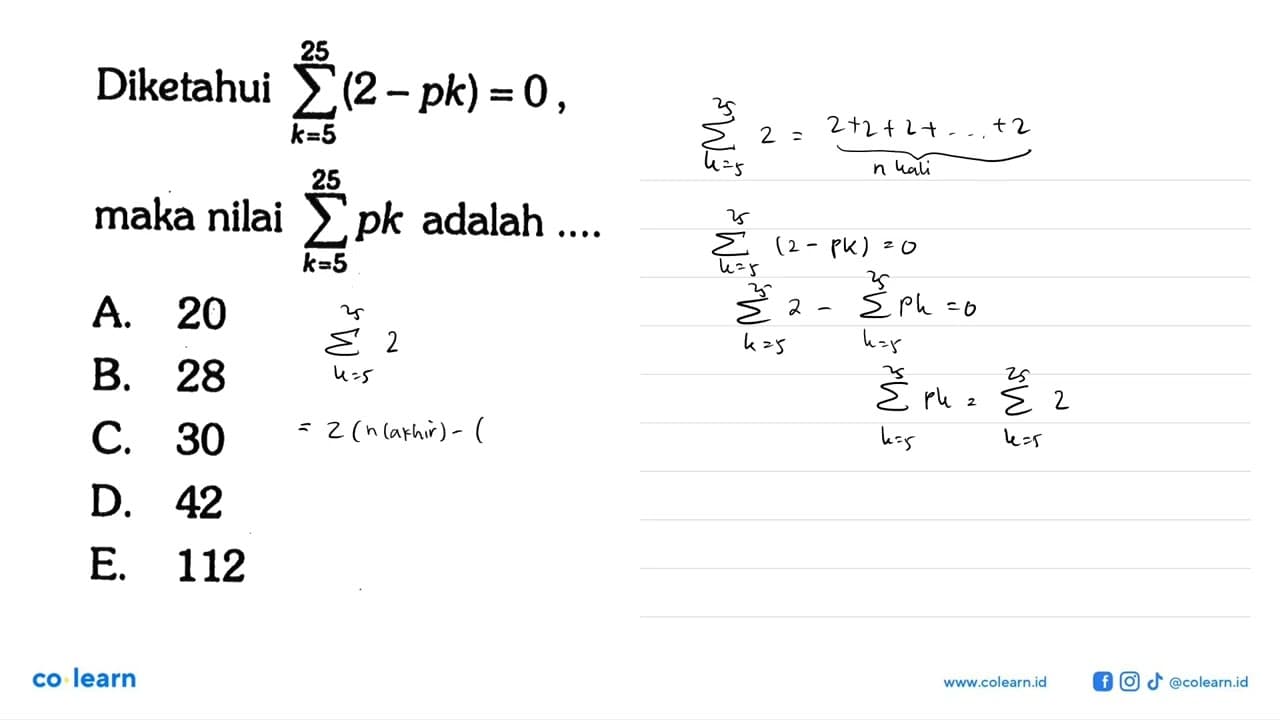 Diketahui \sum_{k=5}^{25} (2 - pk) = 0,
maka nilai \sum_{k=5}^{25} pk adalah ....
A. 20
B. 28
C. 30
D. 42
E. 112
\sum_{k=5}^{25} 2
= 2 (n(akhir) - (
\sum_{k=5}^{25} 2 = 2+2+2+ ... +2
n kali
\sum_{k=5}^{25} (2 - pk) = 0
\sum_{k=5}^{25} 2 - \sum_{k=5}^{25} pk = 0
\sum_{k=5}^{25} pk = \sum_{k=5}^{25} 2
co learn
www.colearn.id
@colearn.id